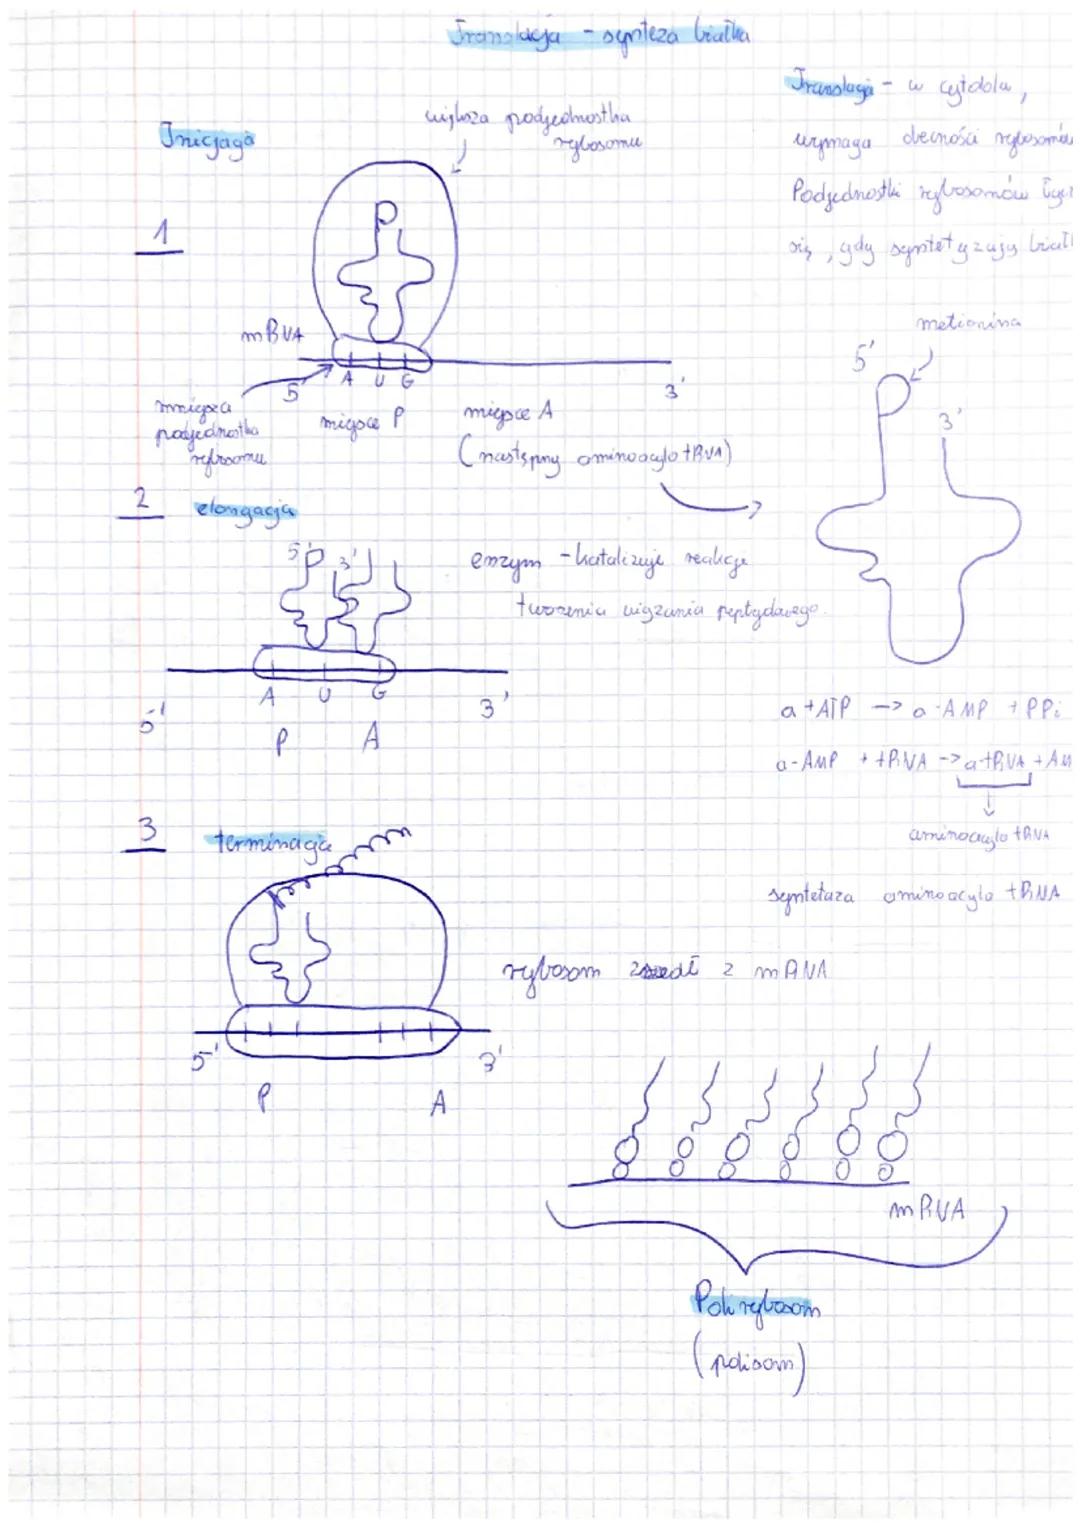 Translacja - synteza białka
Translacja - w cytozolu,
wymaga obecności rybosomów
Podjednostki rybosomów łącz
się, gdy syntetyzują biał
Inicjacja
większa podjednostka
rybosomu
1
mRNA
5'
A U G
3'
mniejsza
podjednostka
rybosomu
miejsce P
miejsce A
(następny aminoacylo tRNA)
metionina
5'
3'
2 elongacja
5'
3'
enzym - katalizuje reakcje
tworzenia wiązania peptydowego.
A U G
5'
3'
P A
a + ATP -> a-AMP + PPi
a-AMP + tRNA -> a-tRNA + AM
aminoacylo tRNA
syntetaza aminoacylo tRNA
3 terminacja
rybosom zszedł z mRNA
5'
3'
P A
mRNA
Polirybosom
(polisom)